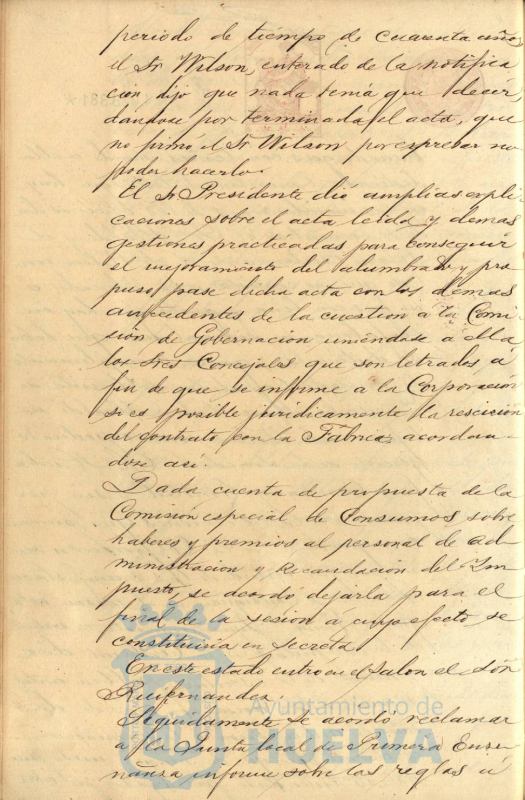 periodo de tiempo de cuarenta años,
el Sr Wilson, enterado de la notifica
cion dijo que nada tema que decir,
dandose por terminada el acta, que
no firmó el Sr Wilson por expresar no
poder hacerlo.
El Sr Presidente dió amplias expli
caciones sobre el acta leida y demas
gestiones practicadas para conseguir
el mejoramiento del alumbrado y pro
puso pase dicha acta con los demas
antecedentes de la cuestion á la Comi
sión de Gobernacion uniéndose á ella
los tres Concejales que son letrados á
fin de que se informe a la Corporación
si es posible juridicamente la rescición
del contrato con la Fabrica acordan-
dose así.
Dada cuenta de propuesta de la
Comisión especial de Consumos sobre
haberes y premios al personal de ad
ministracion y Recaudación del Im
puesto, se acordó dejarla para el
final de la sesión á cuyo efecto se
constituiria en secreta.
En este estado entró en el Salon el Señor
Ruifernandez.
Seguidamente se acordo reclamar
a la Junta local de Primera Ense
ñanza informe sobre las reglas á
Ayuntamiento de
HUELVA